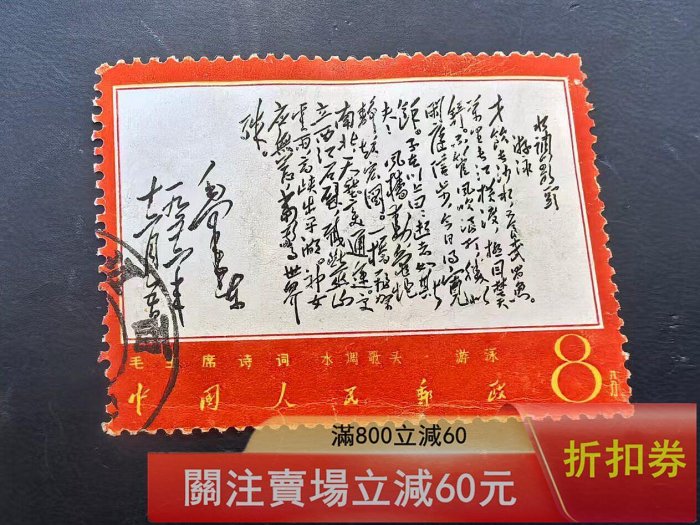 水调歌头
游泳
才飲长沙水,又食武昌魚。
萬里长江横渡,极目楚天
舒。不管風吹浪打,勝似
閒庭信步,今日得寬
餘。子在川上曰:逝者如斯
夫!風檣動,龜蛇
靜,起宏圖。一橋飛架
南北,天塹变通途。更
立西江石壁,截断巫山
雲雨,高峡出平湖。神女
应無恙,當驚世界
殊。
毛泽东
一九五六年
十二月
毛主席诗词 水调歌头 · 游泳
中国人民郵政
8分
滿800立減60
關注賣場立減60元
折扣券